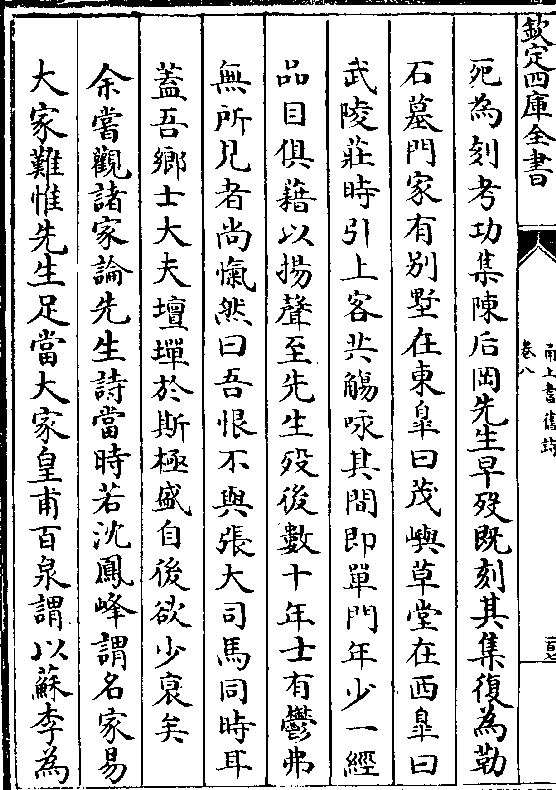 欽定四庫全書
甬上耆舊詩
卷八
死為刻考功集陳后岡先生早歿既刻其集復為勒
石墓門家有别墅在東臯曰茂嶼草堂在西臯曰
武陵莊時引上客共觴咏其間即單門年少一經
品目俱藉以揚聲至先生歿後數十年士有鬱弗
無所見者尚愾然曰吾恨不與張大司馬同時耳
蓋吾鄉士大夫壇墠於斯極盛自後欲少衰矣
余嘗觀諸家論先生詩當時若沈鳳峰謂名家易
大家難惟先生足當大家皇甫百泉謂以蘇李為